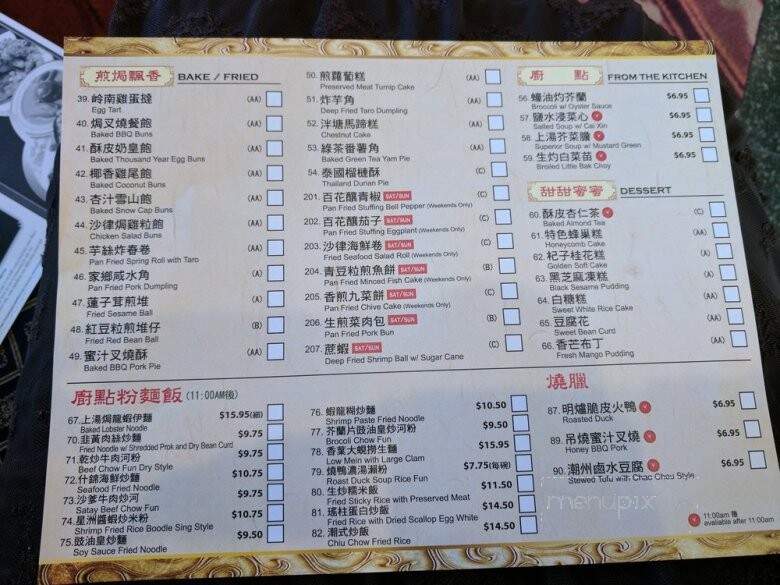 煎焗飄香 BAKE / FRIED
39. 岭南雞蛋撻 (AA)
Egg Tart
40. 焗叉燒餐飽 (AA)
Baked BBQ Buns
41. 酥皮奶皇飽 (AA)
Baked Thousand Year Egg Buns
42. 椰香雞尾飽 (AA)
Baked Coconut Buns
43. 杏汁雪山飽 (AA)
Baked Snow Cap Buns
44. 沙律焗雞粒飽 (AA)
Chicken Salad Buns
45. 芋絲炸春卷 (A)
Pan Fried Spring Roll with Taro
46. 家鄉咸水角 (A)
Pan Fried Pork Dumpling
47. 蓮子茸煎堆 (A)
Fried Sesame Ball
48. 紅豆粒煎堆仔 (B)
Fried Red Bean Ball
49. 蜜汁叉燒酥 (AA)
Baked BBQ Pork Pie
50. 煎蘿蔔糕 (AA)
Preserved Meat Turnip Cake
51. 炸芋角 (AA)
Deep Fried Taro Dumpling
52. 泮塘馬蹄糕 (AA)
Chestnut Cake
53. 綠茶番薯角 (AA)
Baked Green Tea Yam Pie
54. 泰國榴槤酥 (C)
Thailand Durian Pie
201. 百花釀青椒 SAT/SUN (C)
Pan Fried Stuffing Bell Pepper (Weekends Only)
202. 百花釀茄子 SAT/SUN (C)
Pan Fried Stuffing Eggplant (Weekends Only)
203. 沙律海鮮卷 SAT/SUN (C)
Fried Seafood Salad Roll (Weekends Only)
204. 青豆粒煎魚餅 SAT/SUN (B)
Pan Fried Minced Fish Cake (Weekends Only)
205. 香煎九菜餅 SAT/SUN (C)
Pan Fried Chive Cake (Weekends Only)
206. 生煎菜肉包 SAT/SUN (B)
Pan Fried Pork Bun
207. 蔗蝦 SAT/SUN (C)
Deep Fried Shrimp Ball w/ Sugar Cane
廚點 FROM THE KITCHEN
56. 蠔油灼芥蘭 $6.95
Broccoli w/ Oyster Sauce
57. 鹽水浸菜心 $6.95
Salted Soup w/ Cai Xin
58. 上湯芥菜膽 $6.95
Superior Soup w/ Mustard Green
59. 生灼白菜苗 $6.95
Broiled Little Bak Choy
甜甜蜜蜜 DESSERT
60. 酥皮杏仁茶 (C)
Baked Almond Tea
61. 特色蜂巢糕 (AA)
Honeycomb Cake
62. 杞子桂花糕 (A)
Golden Soft Cake
63. 黑芝麻凍糕 (A)
Black Sesame Pudding
64. 白糖糕 (AA)
Sweet White Rice Cake
65. 豆腐花 (AA)
Sweet Bean Curd
66. 香芒布丁 (AA)
Fresh Mango Pudding
廚點粉麵飯 (11:00AM後)
67. 上湯焗龍蝦伊麵 $15.95(細)
Baked Lobster Noodle
70. 韮黃肉絲炒麵 $9.75
Fried Noodle w/ Shredded Prok and Dry Bean Curd
71. 乾炒牛肉河粉 $9.75
Beef Chow Fun Dry Style
72. 什錦海鮮炒麵 $10.75
Seafood Fried Noodle
73. 沙爹牛肉炒河 $9.75
Satay Beef Chow Fun
74. 星洲醬蝦炒米粉 $10.75
Shrimp Fried Rice Boodle Sing Style
75. 豉油皇炒麵 $9.50
Soy Sauce Fried Noodle
76. 蝦龍糊炒麵 $10.50
Shrimp Paste Fried Noodle
77. 芥蘭片豉油皇炒河粉 $9.50
Brocoli Chow Fun
78. 香葉大蜆撈生麵 $15.95
Low Mein with Large Clam
79. 燒鴨濃湯瀨粉 $7.75(每碗)
Roast Duck Soup Rice Fun
80. 生炒糯米飯 $11.50
Fried Sticky Rice with Preserved Meat
81. 瑤柱蛋白炒飯 $14.50
Fried Rice with Dried Scallop Egg White
82. 潮式炒飯 $14.50
Chiu Chow Fried Rice
燒臘
87. 明爐脆皮火鴨 $6.95
Roasted Duck
89. 吊燒蜜汁叉燒 $6.95
Honey BBQ Pork
90. 潮州鹵水豆腐 $6.95
Stewed Tufu with Chao Chou Style
menupix
11:00am 後
avaliable after 11:00am